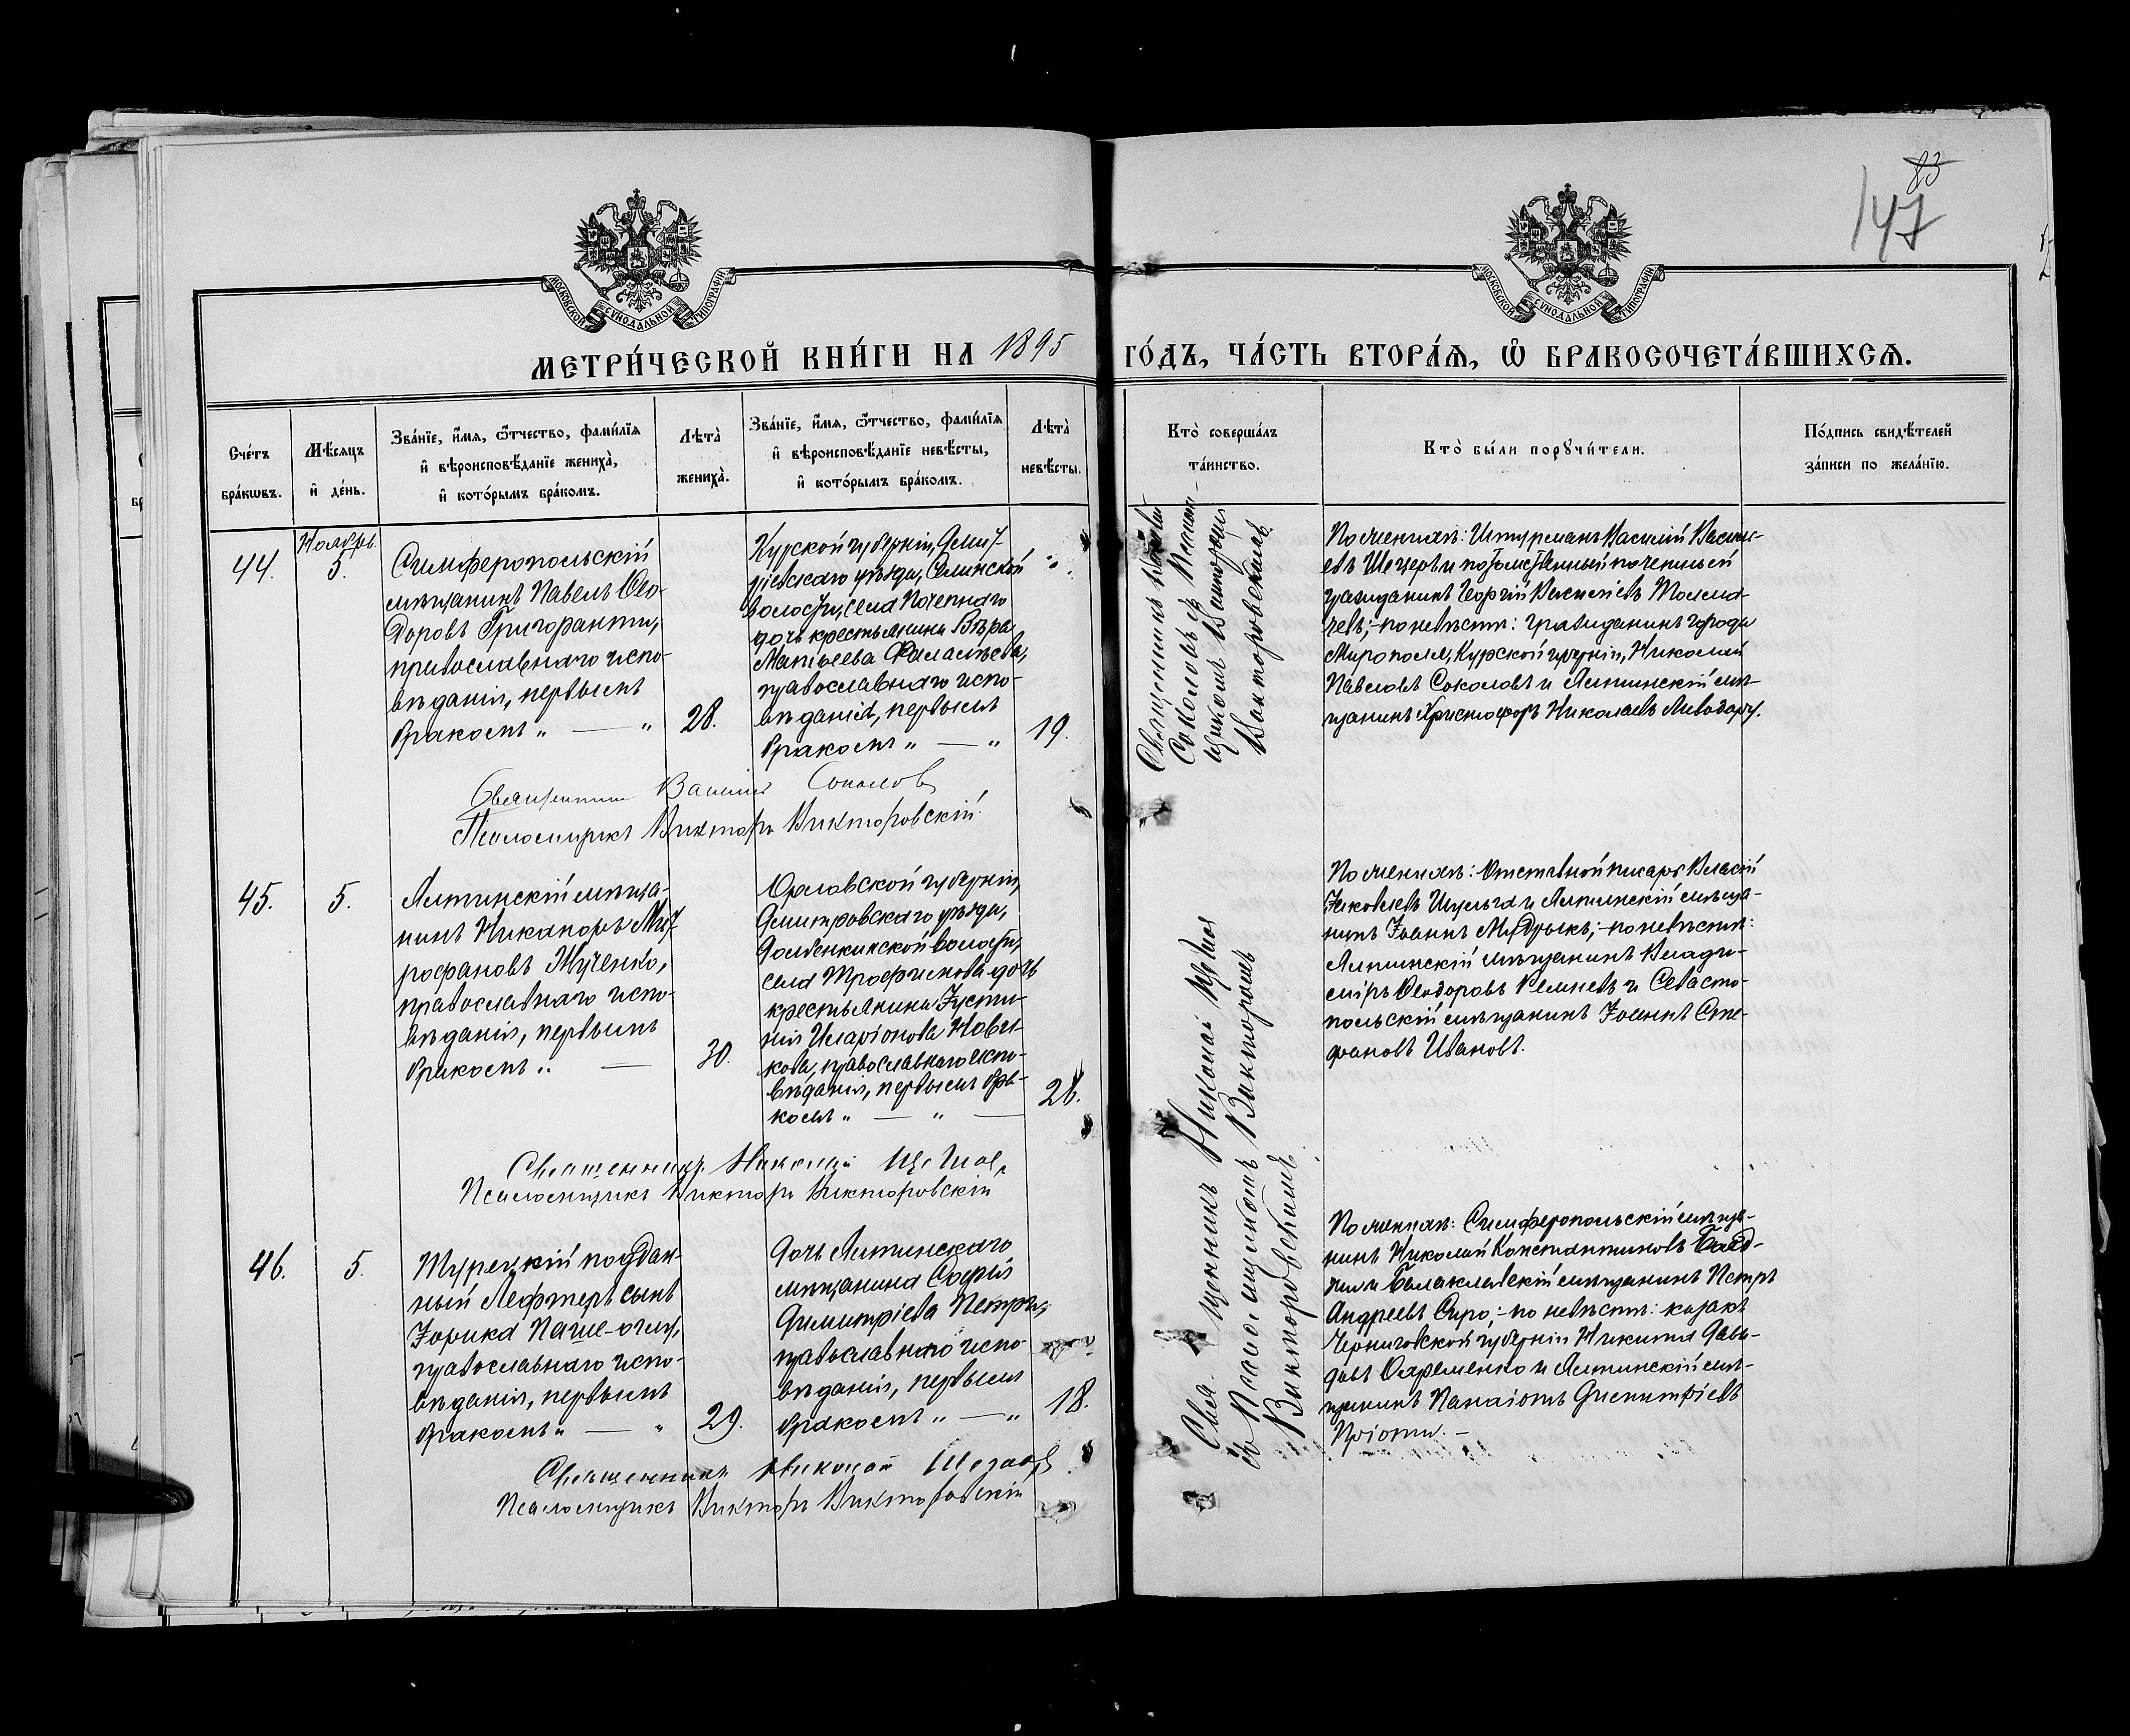 83
147
МОСКОВСКОЙ СѴНОДАЛЬНОЙ ТИПОГРАФІИ
МОСКОВСКОЙ СѴНОДАЛЬНОЙ ТИПОГРАФІИ
МЕТРИ́ЧЕСКОЙ КНИ́ГИ НА 1895 ГО́ДЪ, ЧА́СТЬ ВТОРА́Я, Ѡ҆ БРАКОСОЧЕТА́ВШИХСЯ.
Сче́тъ
бра́кѡвъ.
Мѣ́сяцъ
и҆ де́нь.
Зва́нїе, и҆́мя, ѻ҆́тчество, фами́лїя
и҆ вѣроисповѣ́данїе жениха̀,
и҆ кото́рымъ бра́комъ.
Лѣта̀
жениха̀.
Зва́нїе, и҆́мя, ѻ҆́тчество, фами́лїя
и҆ вѣроисповѣ́данїе невѣ́сты,
и҆ кото́рымъ бра́комъ.
Лѣта̀
невѣ́сты.
Кто̀ соверша́лъ
та́инство.
Кто̀ бы́ли порꙋчи́тели.
По́дпись свидѣ́телей
за́писи по жела́нїю.
44.
Ноябрь
5.
Симферопольскій
мѣщанинъ Павелъ Ѳео-
доровъ Григоранти,
православнаго испо-
вѣданія, первымъ
бракомъ „ — „
28.
Курской губерніи, Дмит-
ріевскаго уѣзда,
волости, села
дочь крестьянина Вѣра
Матѳеева
православнаго испо-
вѣданія, первымъ
бракомъ „ — „
19.
Священникъ Василій
Соколовъ съ Псалом-
щикомъ Викторомъ
Викторовскимъ
По женихѣ: Штурманъ Василій Василь-
евъ и потомственный почетный
гражданинъ Георгій Василіевъ Толма-
чевъ; – по невѣстѣ: гражданинъ города
Мирополя, Курской губерніи, Николай
Павловъ Соколовъ и Ялтинскій мѣ-
щанинъ Христофоръ Николаевъ Ливодару.
Священникъ Василій Соколовъ
Псаломщикъ Викторъ Викторовскій
45.
5.
Ялтинскій мѣща-
нинъ Никаноръ Мит-
рофановъ Жученко,
православнаго испо-
вѣданія, первымъ
бракомъ „ —
30.
Орловской губерніи,
Дмитровскаго уѣзда,
Долбенкинской волости,
села Трофимова дочь
крестьянина Іусти-
нія Иларіонова Нови-
кова, православнаго испо-
вѣданія, первымъ бра-
комъ „ — „ —
26.
По женихѣ: Отставной писарь Власій
Яковлевъ Шульга и Ялтинскій мѣща-
нинъ Іоаннъ Мудрыкъ; – по невѣстѣ:
Ялтинскій мѣщанинъ Влади-
міръ Ѳеодоровъ и Севасто-
польскій мѣщанинъ Іоаннъ Сте-
фановъ Ивановъ.
Священникъ Николай
Псаломщикъ Викторъ Викторовскій
46.
5.
Турецкій поддан-
ный Лефтеръ сынъ
Іорика
православнаго испо-
вѣданія, первымъ
бракомъ „ — „
29.
Дочь Ялтинскаго
мѣщанина Софія
Димитріева Петри,
православнаго испо-
вѣданія, первымъ
бракомъ „ — „
18.
Священникъ Николай
съ Псаломщикомъ Викторомъ
Викторовскимъ
По женихѣ: Симферопольскій мѣща-
нинъ Николай Константиновъ
и Балаклавскій мѣщанинъ Петръ
Андреевъ Спро; – по невѣстѣ: казакъ
Черниговской губерніи Никита Дави-
довъ и Ялтинскій мѣ-
щанинъ Панаіотъ Димитріевъ
Священникъ Николай
Псаломщикъ Викторъ Викторовскій